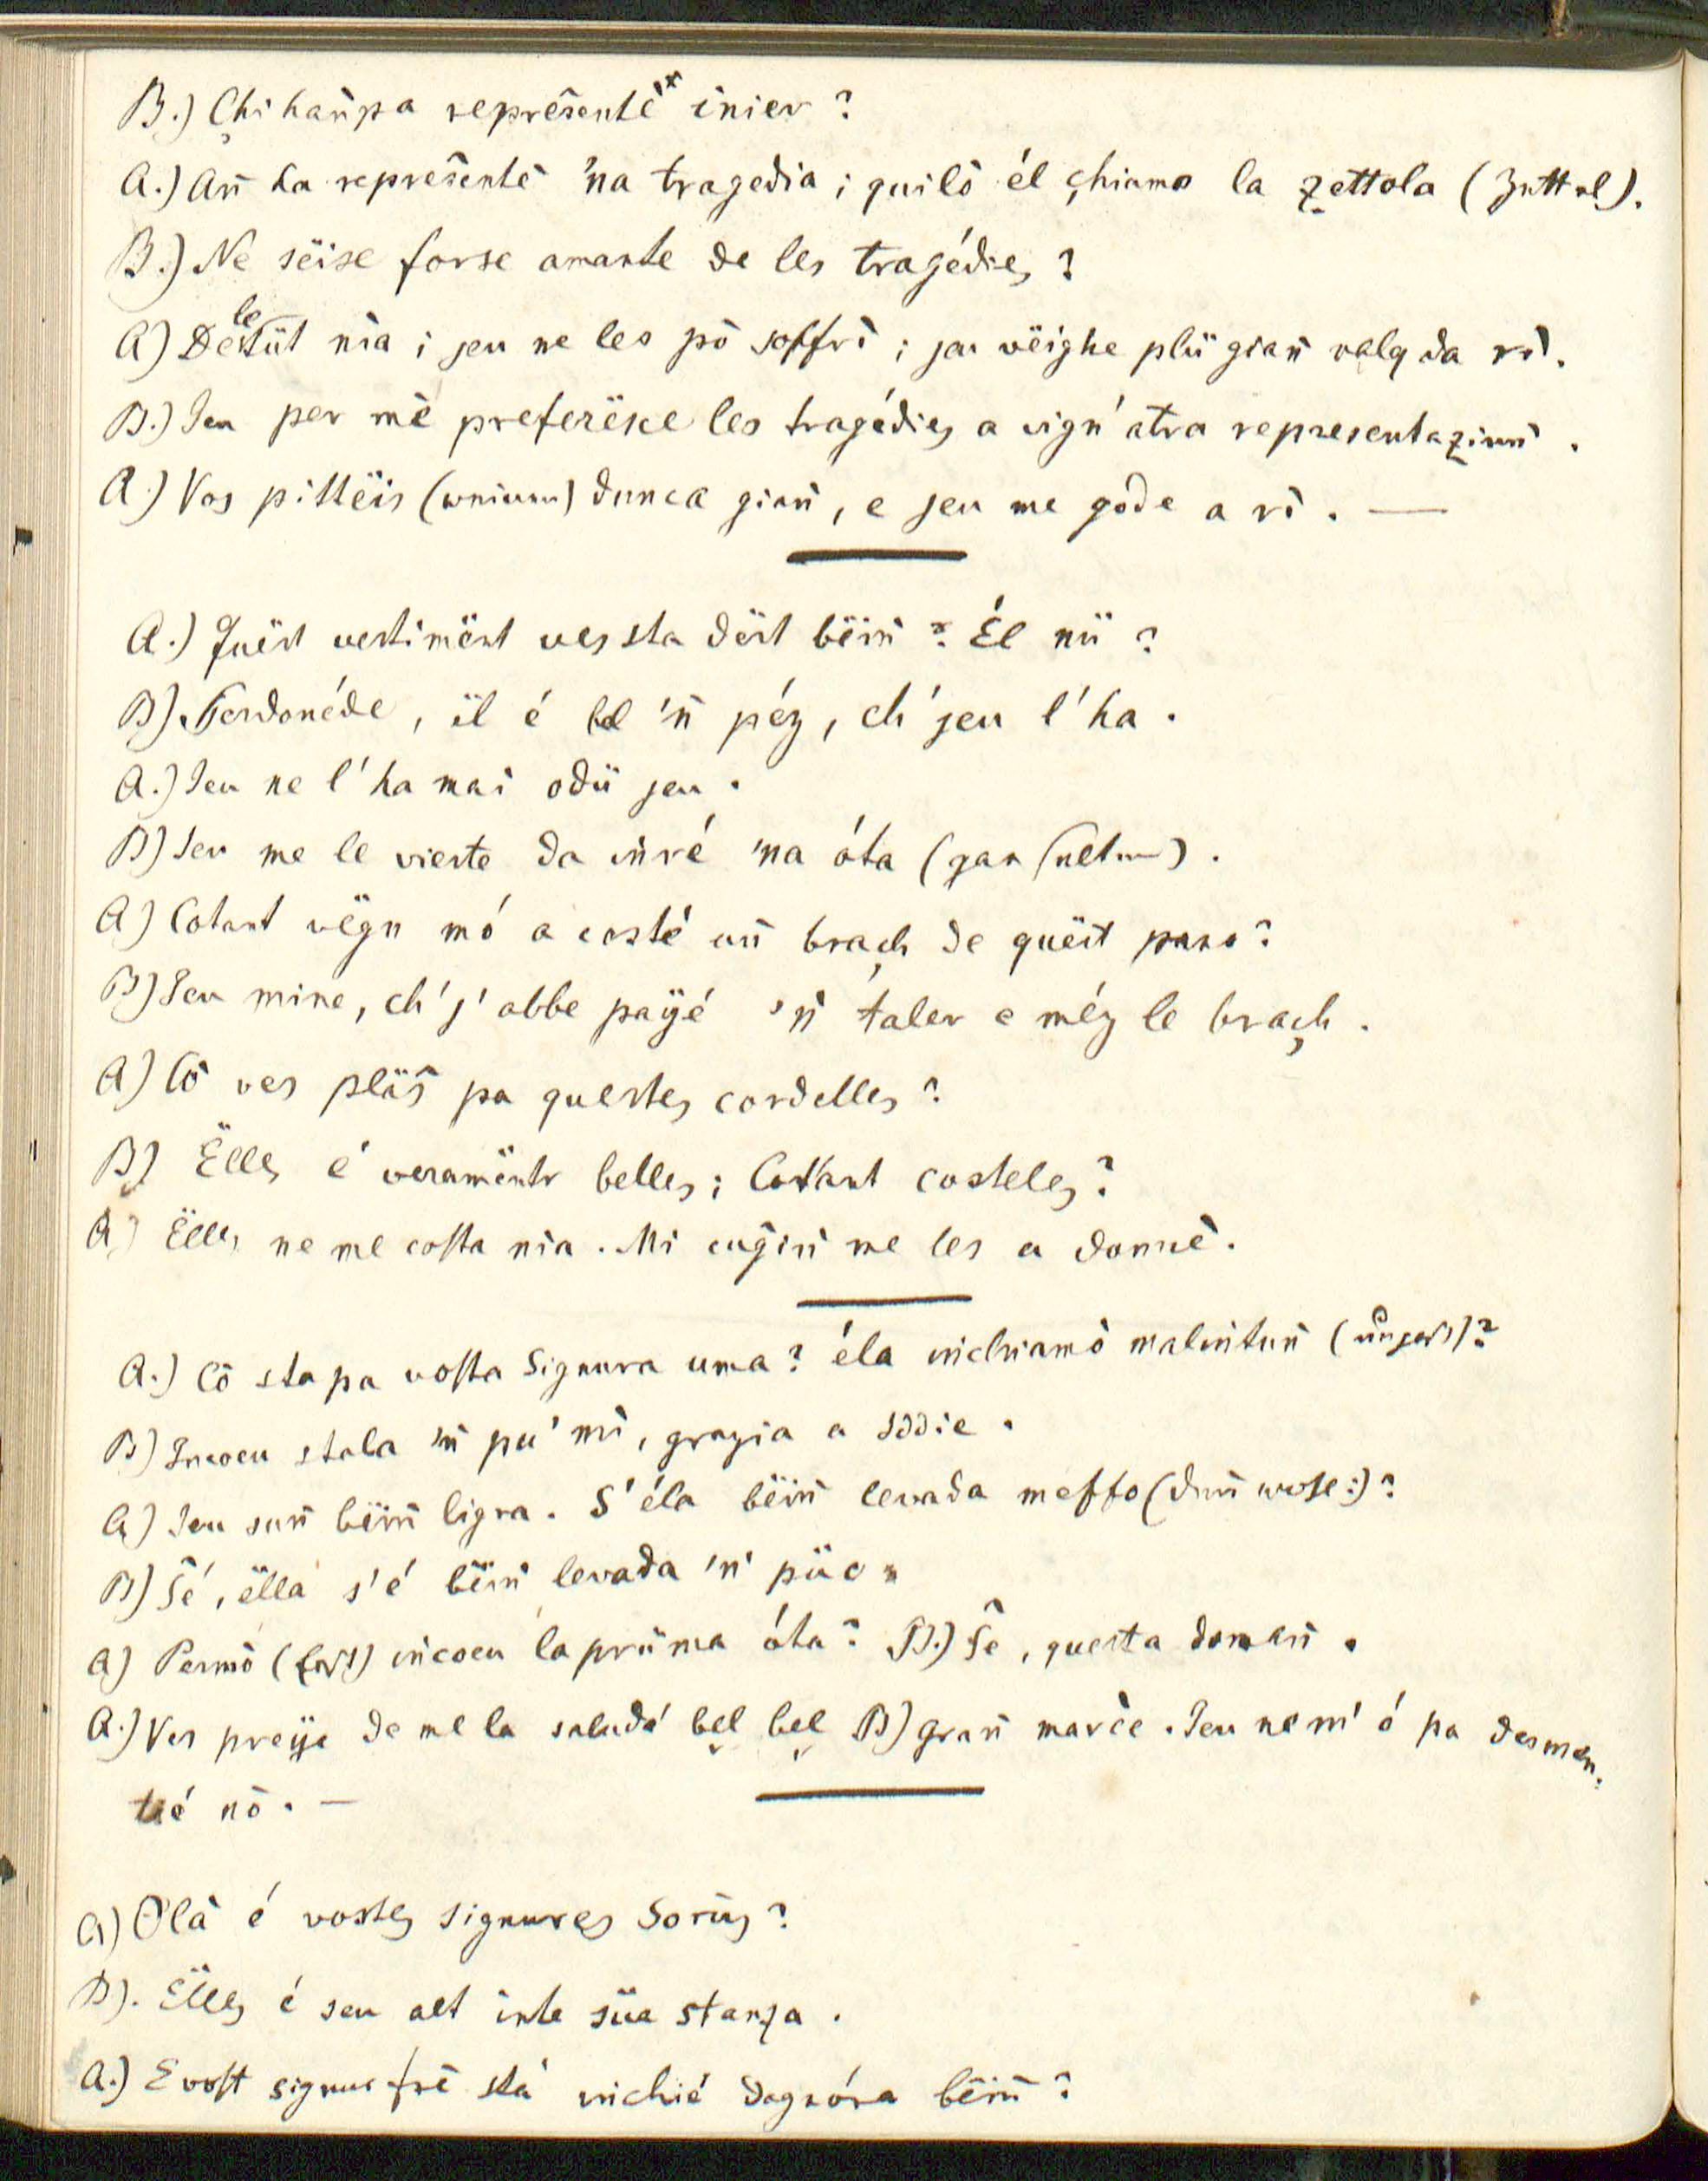 B.) Çhi hañpa repreŝentè inier?
A.) Añ ha repreŝentè 'na tragedia; quilò él çhiamo la zettola (Zettel).
B.) Ne sëise forse amante de les tragédies?
A) De le tüt nia; jeu ne les pò soffrì; jeu vëighe plü giañ valq da rì.
B.) Jeu per mè preferësce les tragédies a vign' atra representaziuñ.
A.) Vos pittëis (weinen) dunca giañ, e jeu me gode a rì. —
A.) Quëst vestimënt ves sta dërt bëiñ? Él nü?
B) Perdonéde, ël é bel 'ñ péz, ch' jeu l' ha.
A.) Jeu ne l' ha mai odü jeu.
B) Jeu me le vieste da iñré 'na óta (gar selten).
A) Cotant vëgn mó a costé uñ braçh de quëst pano?
B) Jeu mine, ch' j' abbe payé 'ñ taler e méz le braçh.
A) Cò ves plaŝ pa questes cordelles?
B) Ëlles é veramënter belles; Cotant costeles?
A) Ëlles ne me costa nia. Mi cuĝiñ me les a donnè.
A.) Cò sta pa vosta Signura uma? éla iñchiamò maliñtuñ (unpass)?
B) Incoeu stala 'ñ pu' mì, grazia a Iddie.
A) Jeu suñ bëiñ ligra. S' éla bëiñ levada meffo (dun wohl:)?
B) Ŝé, ëlla s' é bëiñ levada 'ñ püc.
A) Permò (erst) iñcoeu la prüma óta? B.) Ŝè, questa domañ.
A.) Ves preye de me la saludé bel bel B) grañ marcè. Jeu ne m' ó pa desmen-
tié nò. —
A) Olà é vostes signures Sorüs?
B). Ëlles é seu alt inte süa stanza.
A.) E vost signur frè stá iñchié dagnóra bëiñ?